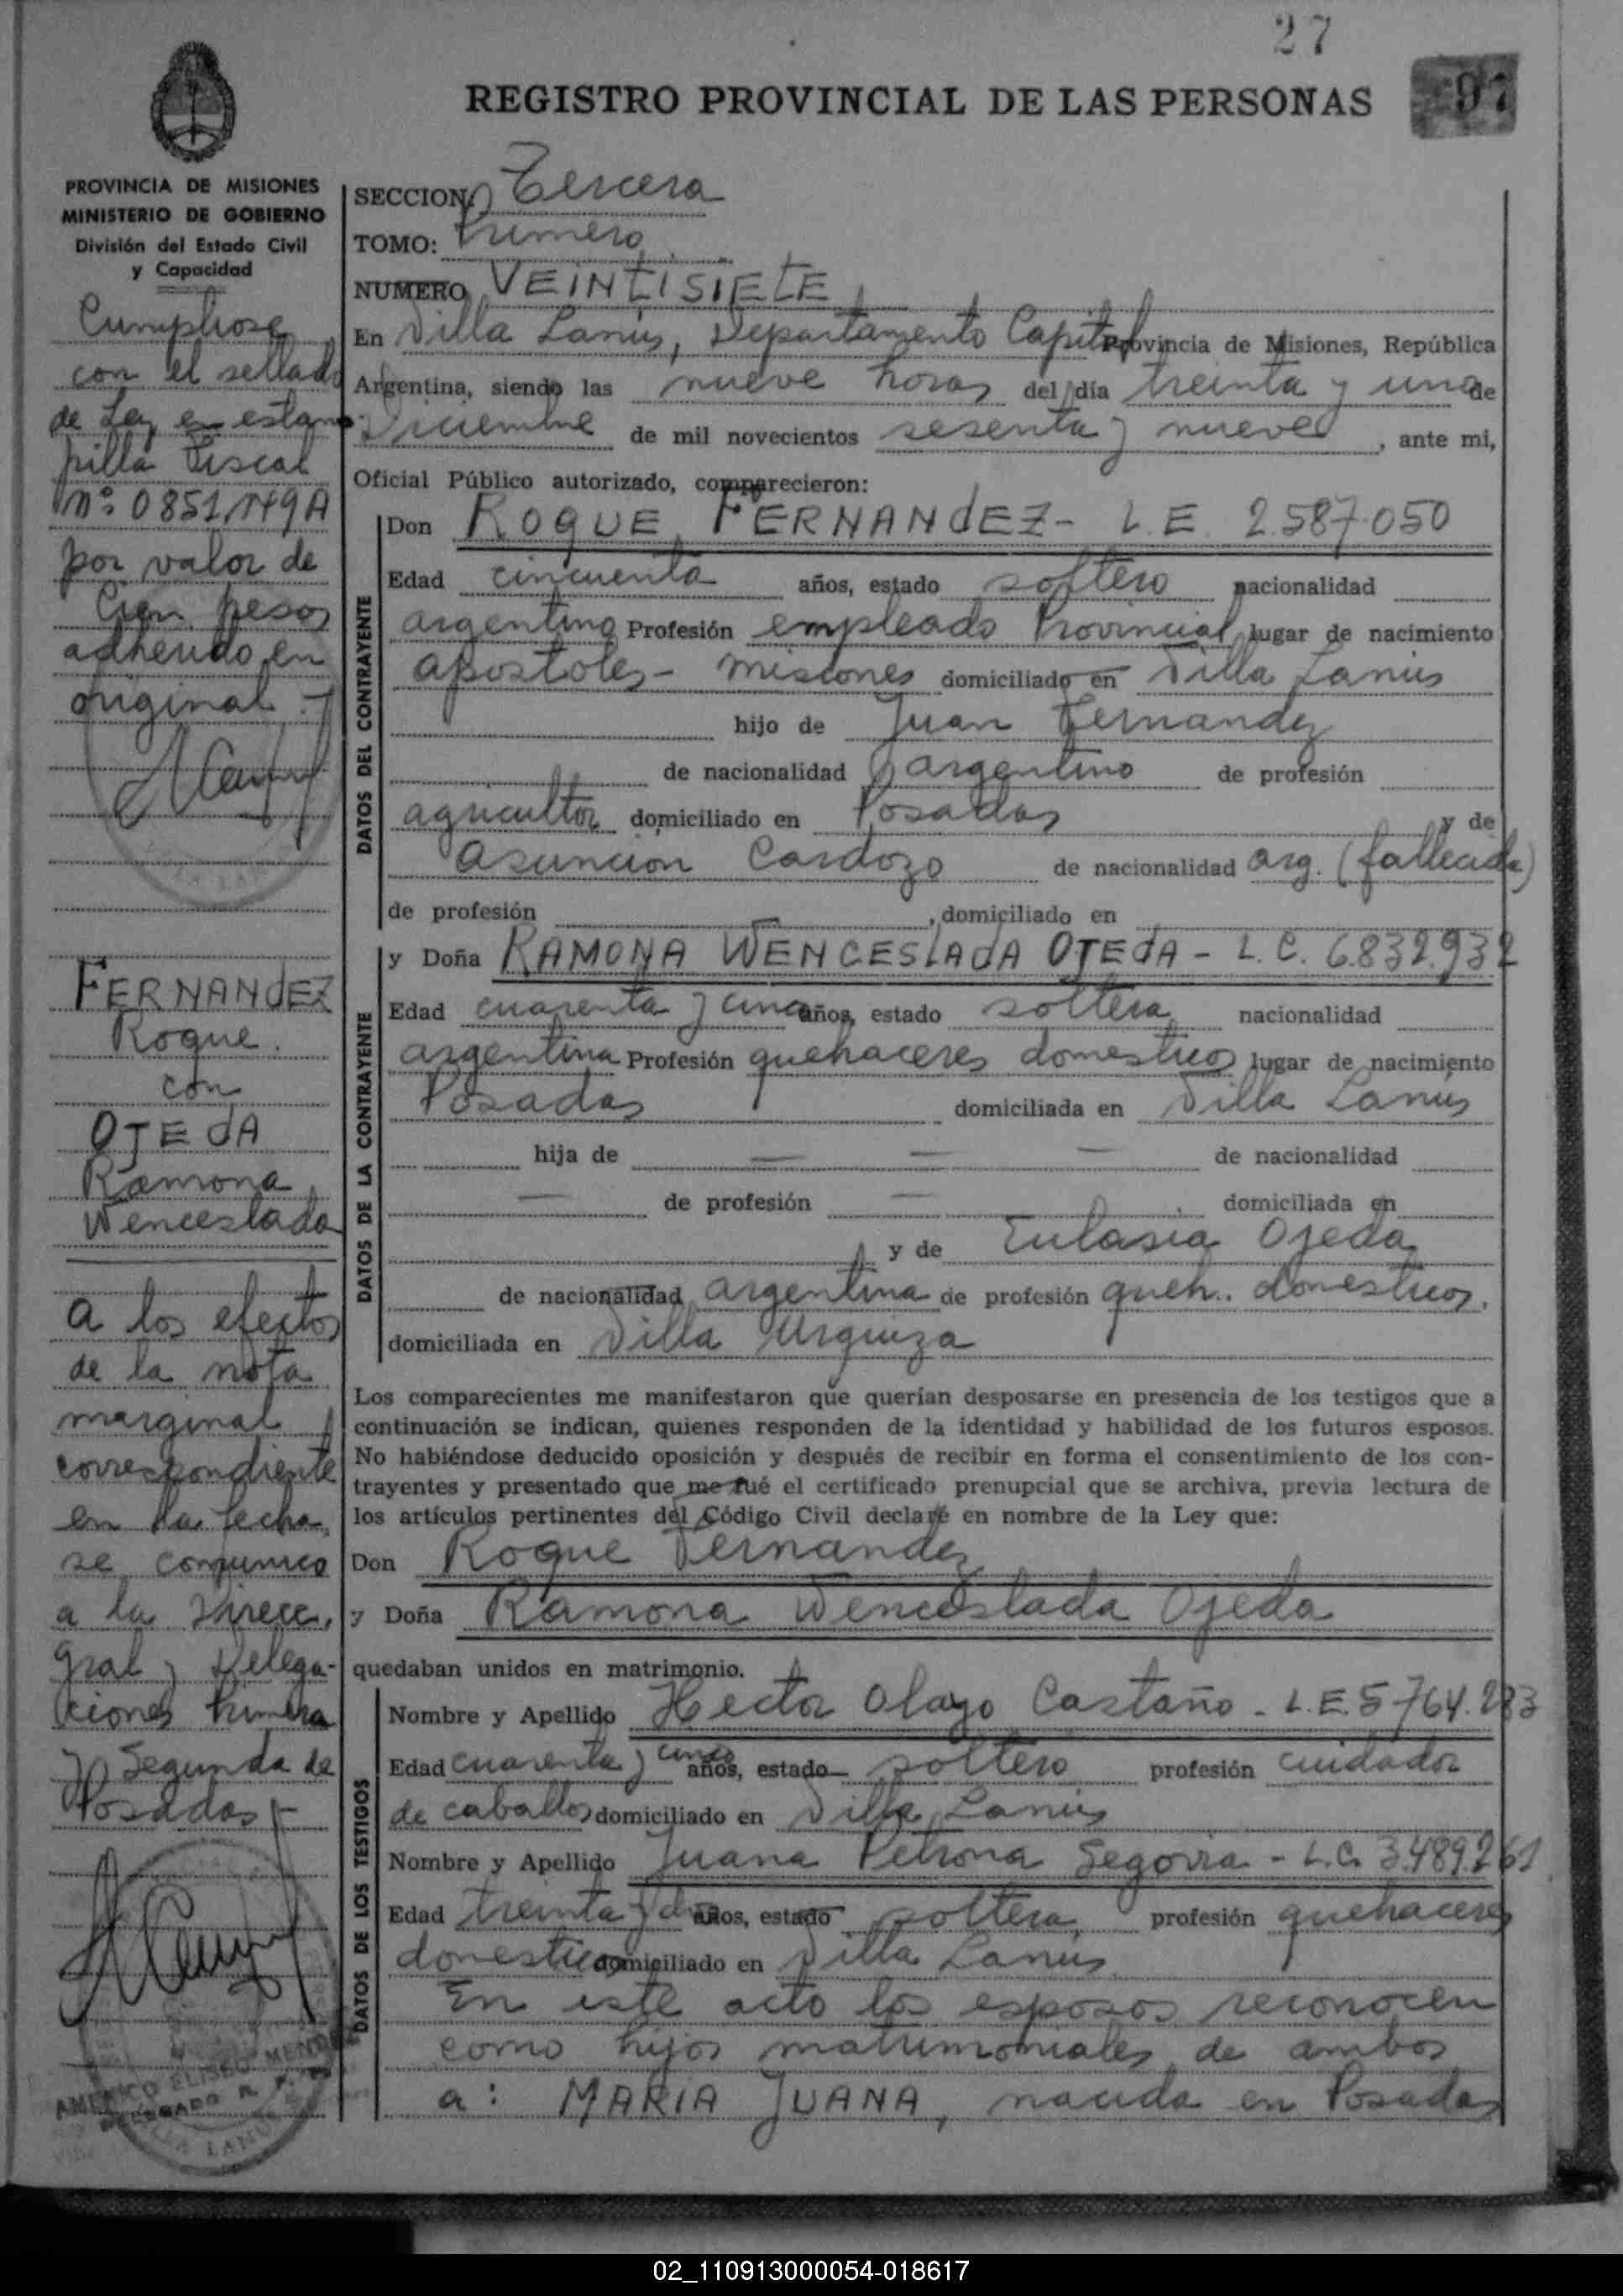 27
REGISTRO PROVINCIAL DE LAS PERSONAS
97
PROVINCIA DE MISIONES
MINISTERIO DE GOBIERNO
División del Estado Civil
y Capacidad
Cumpliose
con el sellado
de Ley en estam-
pilla Fiscal
Nº: 0851,149A
por valor de
Cien pesos
adherido en
original.-
FERNANDEZ
Roque.
con
OJEDA
Ramona
Wenceslada
a los efectos
de la nota
marginal
correspondiente
en la fecha,
se comunico
a la Direcc.
Gral y Delega-
ciones Primera
y Segunda de
Posadas.-
AMERICO ELISEO MENDE
DELEGADO R. P. P.
VILLA LANUS
SECCION: Tercera
TOMO: Primero
NUMERO VEINTISIETE
En Villa Lanús, Departamento Capital Provincia de Misiones, República
Argentina, siendo las nueve horas del día treinta y uno de
Diciembre de mil novecientos sesenta y nueve, ante mi,
Oficial Público autorizado, comparecieron:
DATOS DEL CONTRAYENTE
Don ROQUE FERNANDEZ - L.E. 2.587.050
Edad cincuenta años, estado soltero nacionalidad
argentino Profesión empleado Provincial lugar de nacimiento
apostoles - misiones domiciliado en Villa Lanús
hijo de Juan Fernandez
de nacionalidad argentino de profesión
agricultor domiciliado en Posadas y de
Asuncion Cardozo de nacionalidad arg. (fallecida)
de profesión , domiciliado en
DATOS DE LA CONTRAYENTE
y Doña RAMONA WENCESLADA OJEDA - L.C. 6.832.932
Edad cuarenta y cinco años, estado soltera nacionalidad
argentina Profesión quehaceres domesticos lugar de nacimiento
Posadas domiciliada en Villa Lanús
hija de — — — de nacionalidad
— de profesión — domiciliada en
y de Eulasia Ojeda
de nacionalidad argentina de profesión queh. domesticos,
domiciliada en Villa Urquiza
Los comparecientes me manifestaron que querían desposarse en presencia de los testigos que a
continuación se indican, quienes responden de la identidad y habilidad de los futuros esposos.
No habiéndose deducido oposición y después de recibir en forma el consentimiento de los con-
trayentes y presentado que me fué el certificado prenupcial que se archiva, previa lectura de
los artículos pertinentes del Código Civil declaré en nombre de la Ley que:
Don Roque Fernandez
y Doña Ramona Wenceslada Ojeda
quedaban unidos en matrimonio.
DATOS DE LOS TESTIGOS
Nombre y Apellido Hector Olayo Castaño - L.E. 5764.283
Edad cuarenta y cinco años, estado soltero profesión cuidador
de caballos domiciliado en Villa Lanús
Nombre y Apellido Juana Petrona Segovia - L.C. 3.489.261
Edad treinta y dos años, estado soltera profesión quehaceres
domesticos domiciliado en Villa Lanús
En este acto los esposos reconocen
como hijos matrimoniales de ambos
a: MARIA JUANA, nacida en Posadas
02_110913000054-018617